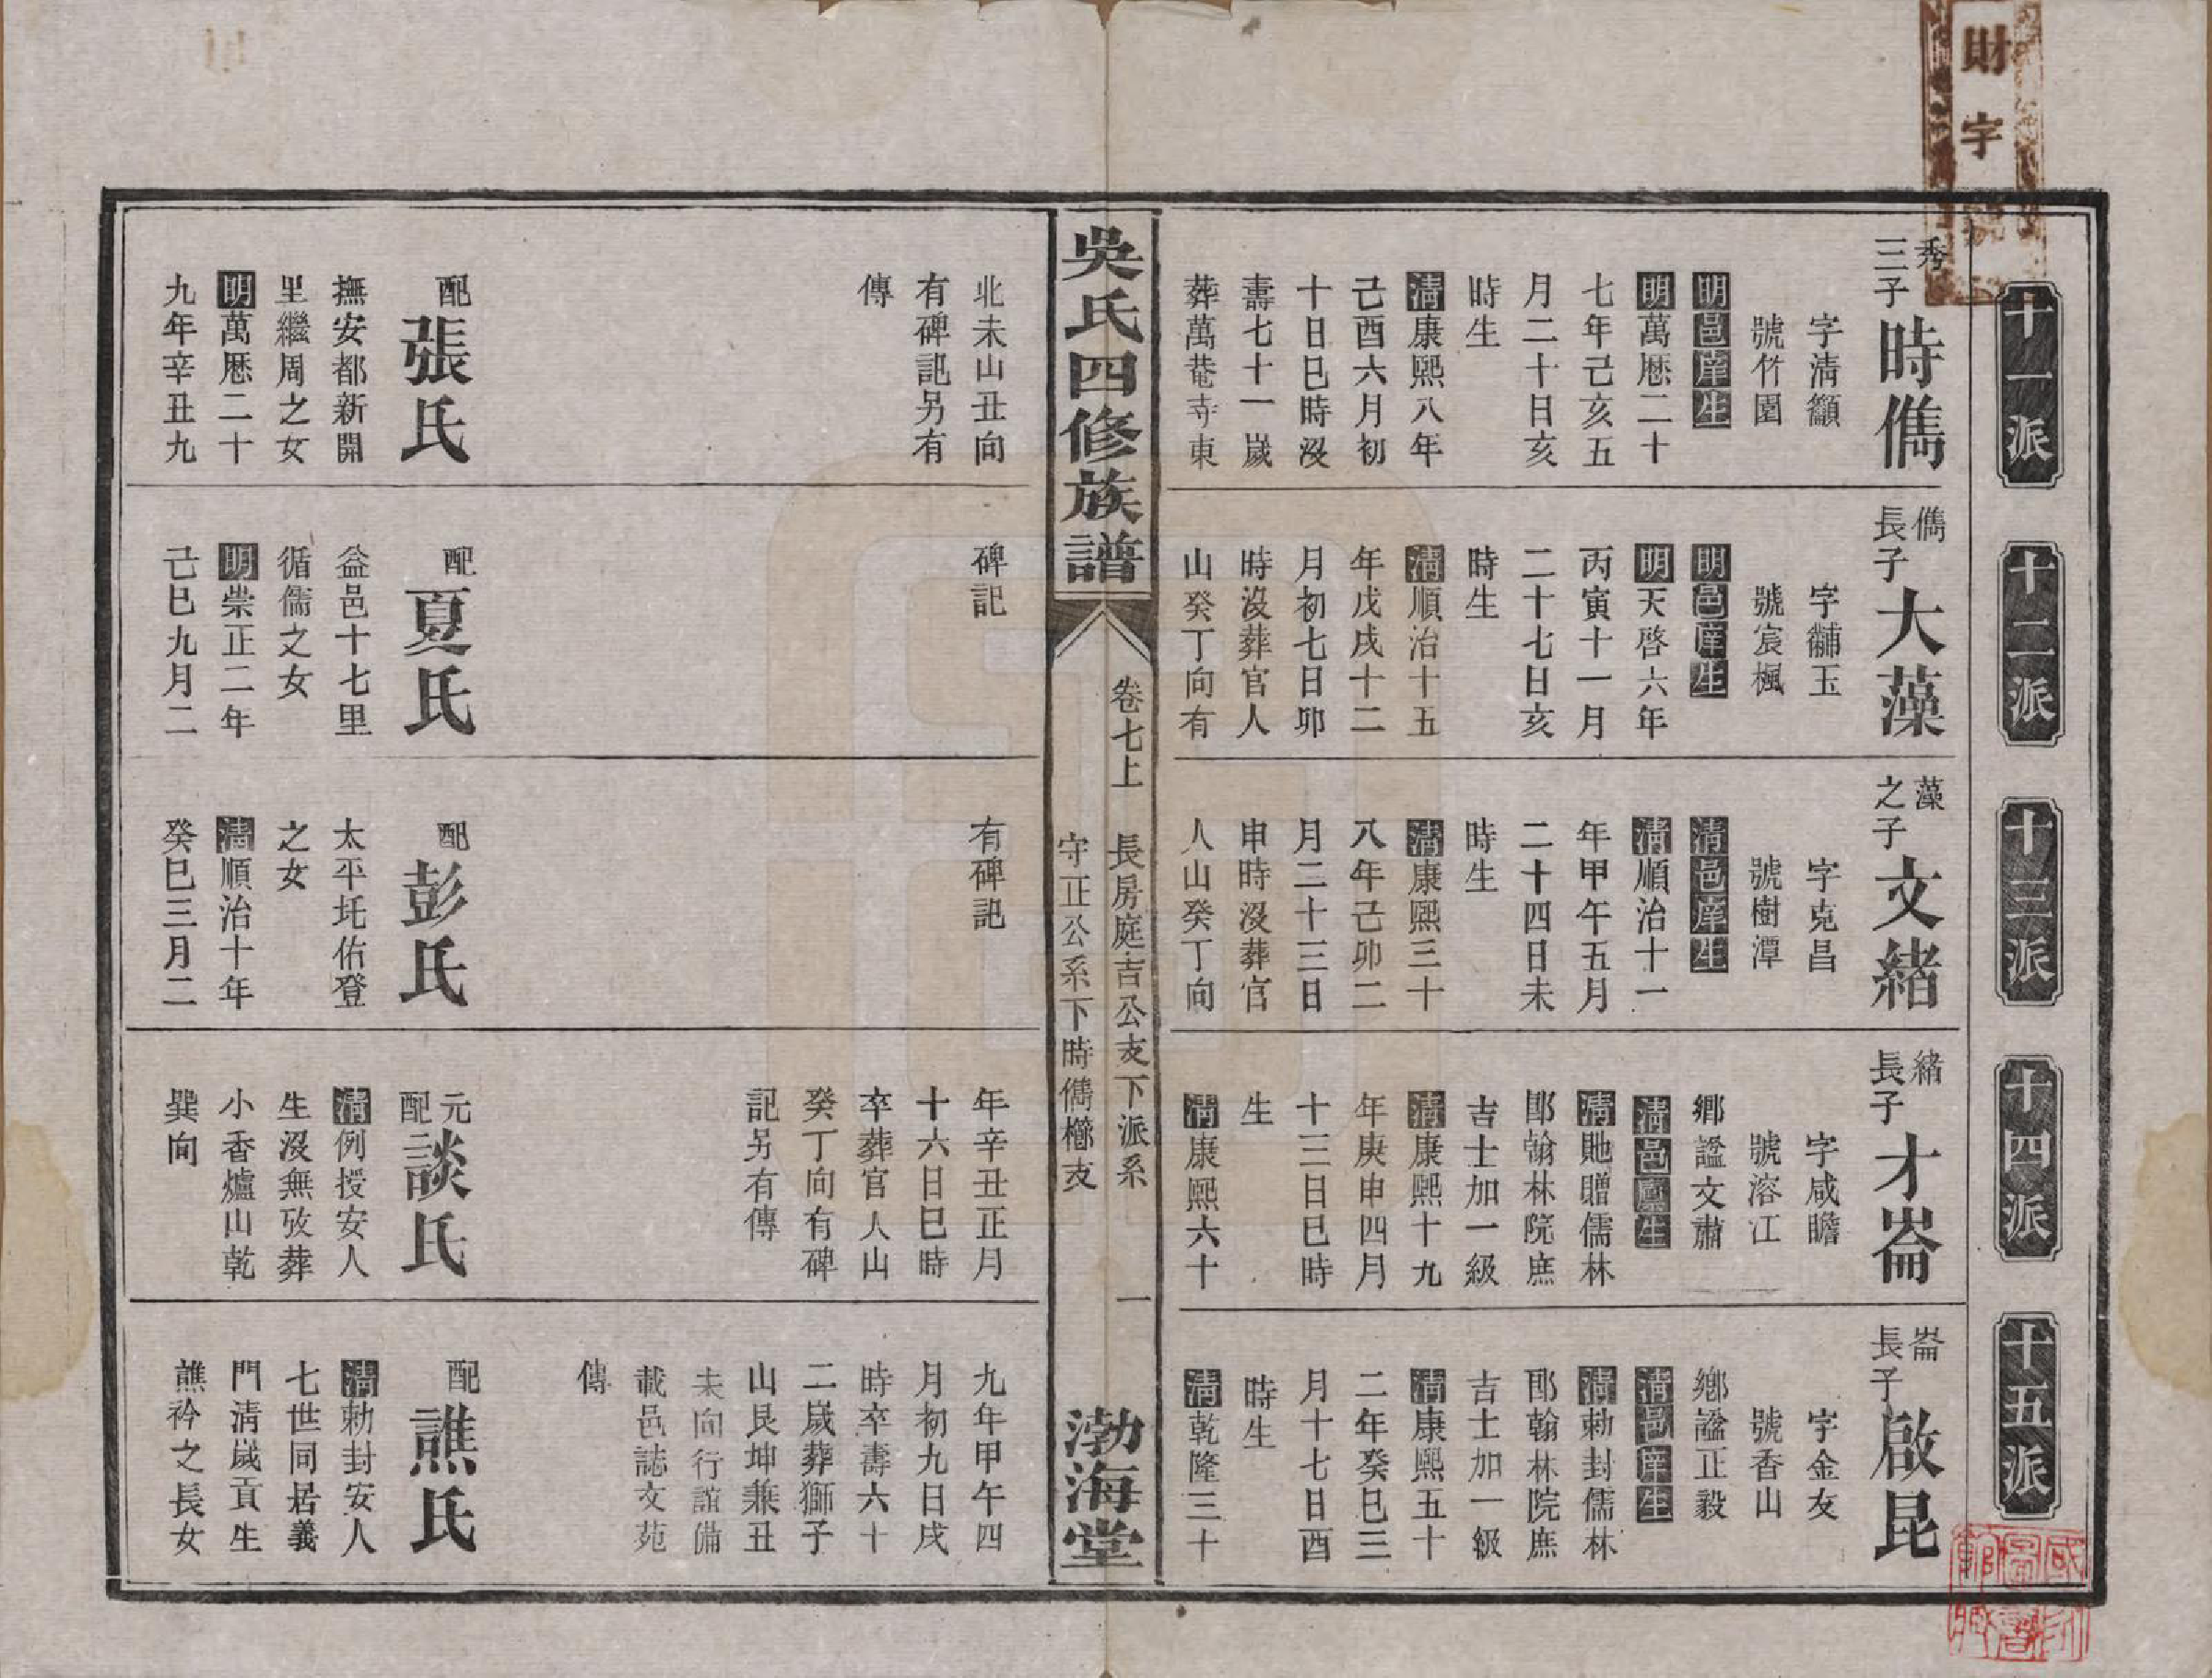 財字號
十一派
秀三子時儁
字清籲
號竹園
明邑庠生
明萬厯二十
七年己亥五
月二十日亥
時生
清康熙八年
己酉六月初
十日巳時沒
壽七十一歲
葬萬菴寺東
北未山丑向
有碑記另有
傳
配張氏
撫安都新開
里繼周之女
明萬厯二十
九年辛丑九
十二派
儁長子大藻
字黼玉
號宸楓
明邑庠生
明天啓六年
丙寅十一月
二十七日亥
時生
清順治十五
年戊戌十二
月初七日卯
時沒葬官人
山癸丁向有
碑記
配夏氏
益邑十七里
循儒之女
明崇正二年
己巳九月二
十三派
藻之子文緒
字克昌
號樹潭
清邑庠生
清順治十一
年甲午五月
二十四日未
時生
清康熙三十
八年己卯二
月二十三日
申時沒葬官
人山癸丁向
有碑記
配彭氏
太平圫佑登
之女
清順治十年
癸巳三月二
十四派
緒長子才崙
字咸瞻
號溶江
鄉諡文肅
清邑廩生
清貤贈儒林
郎翰林院庶
吉士加一級
清康熙十九
年庚申四月
十三日巳時
生
清康熙六十
年辛丑正月
十六日巳時
卒葬官人山
癸丁向有碑
記另有傳
元配談氏
清例授安人
生沒無攷葬
小香爐山乾
巽向
十五派
崙長子啟昆
字金友
號香山
鄉諡正毅
清邑庠生
清勅封儒林
郎翰林院庶
吉士加一級
清康熙五十
二年癸巳三
月十七日酉
時生
清乾隆三十
九年甲午四
月初九日戌
時卒壽六十
二歲葬獅子
山艮坤兼丑
未向行誼備
載邑誌文苑
傳
配譙氏
清勅封安人
七世同居義
門清歲貢生
譙衿之長女
吳氏四修族譜
卷七上
長房庭吉公支下派系
守正公系下時儁櫛支
一
渤海堂